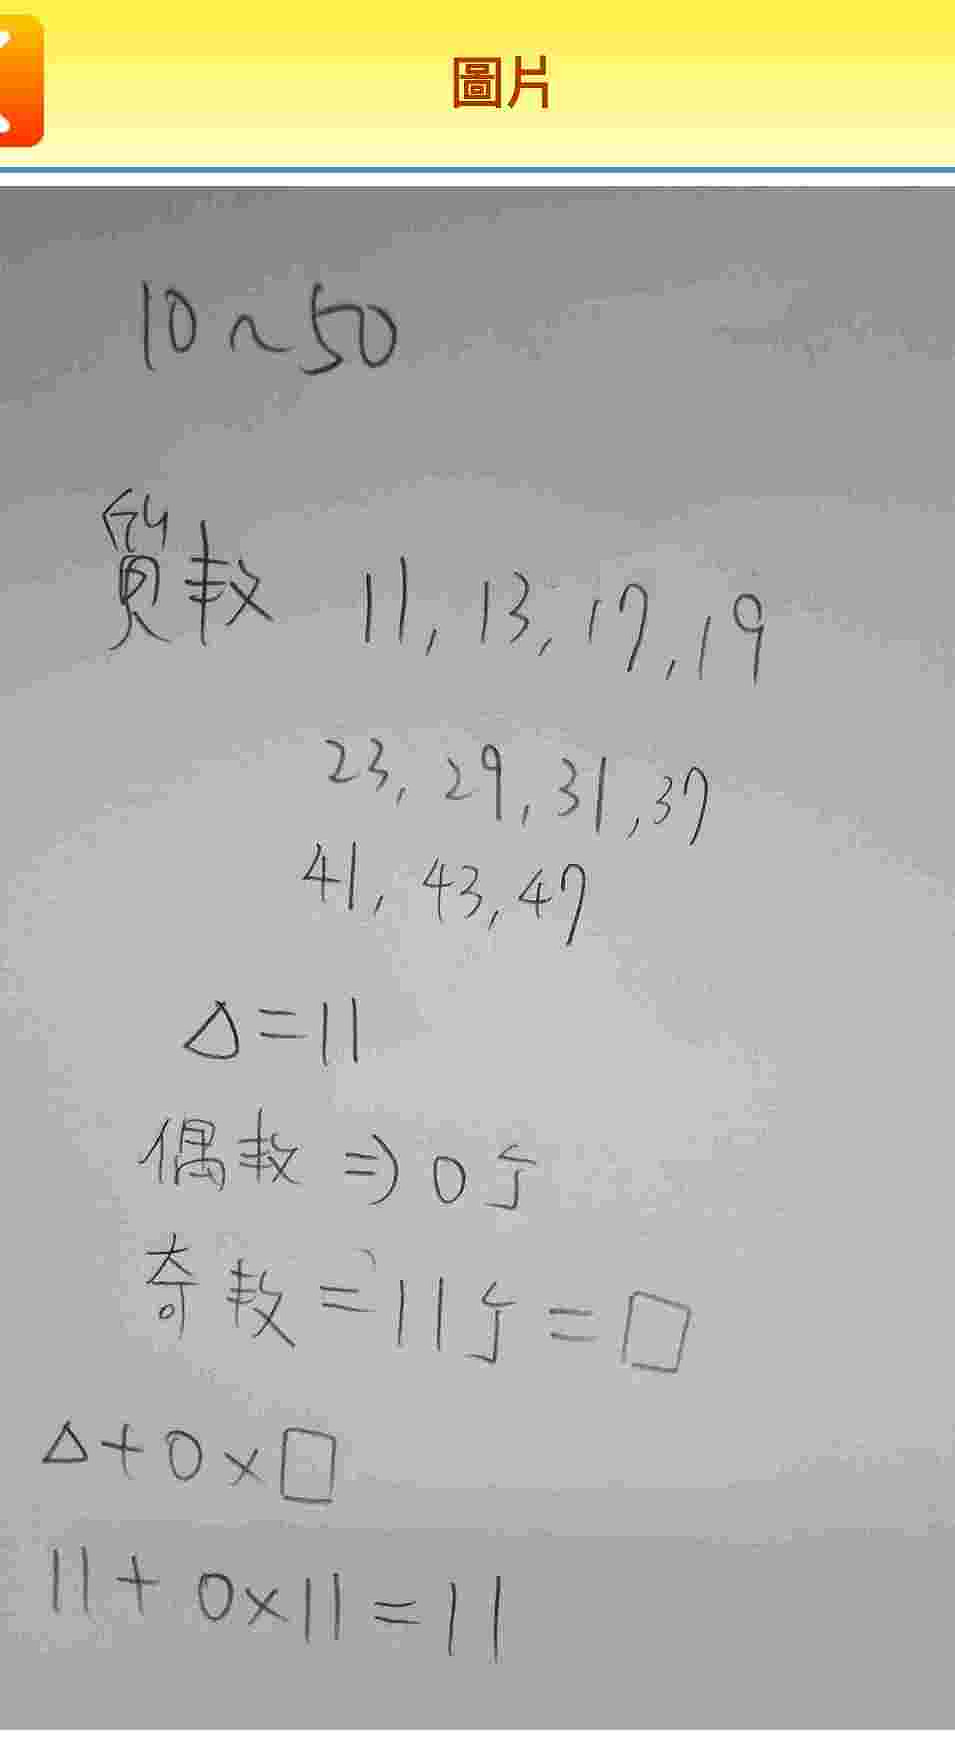 圖片
10~50
質数 11, 13, 17, 19
23, 29, 31, 37
41, 43, 47
△=11
偶数 => 0个
奇数 = 11个 = □
△+0×□
11+0×11=11